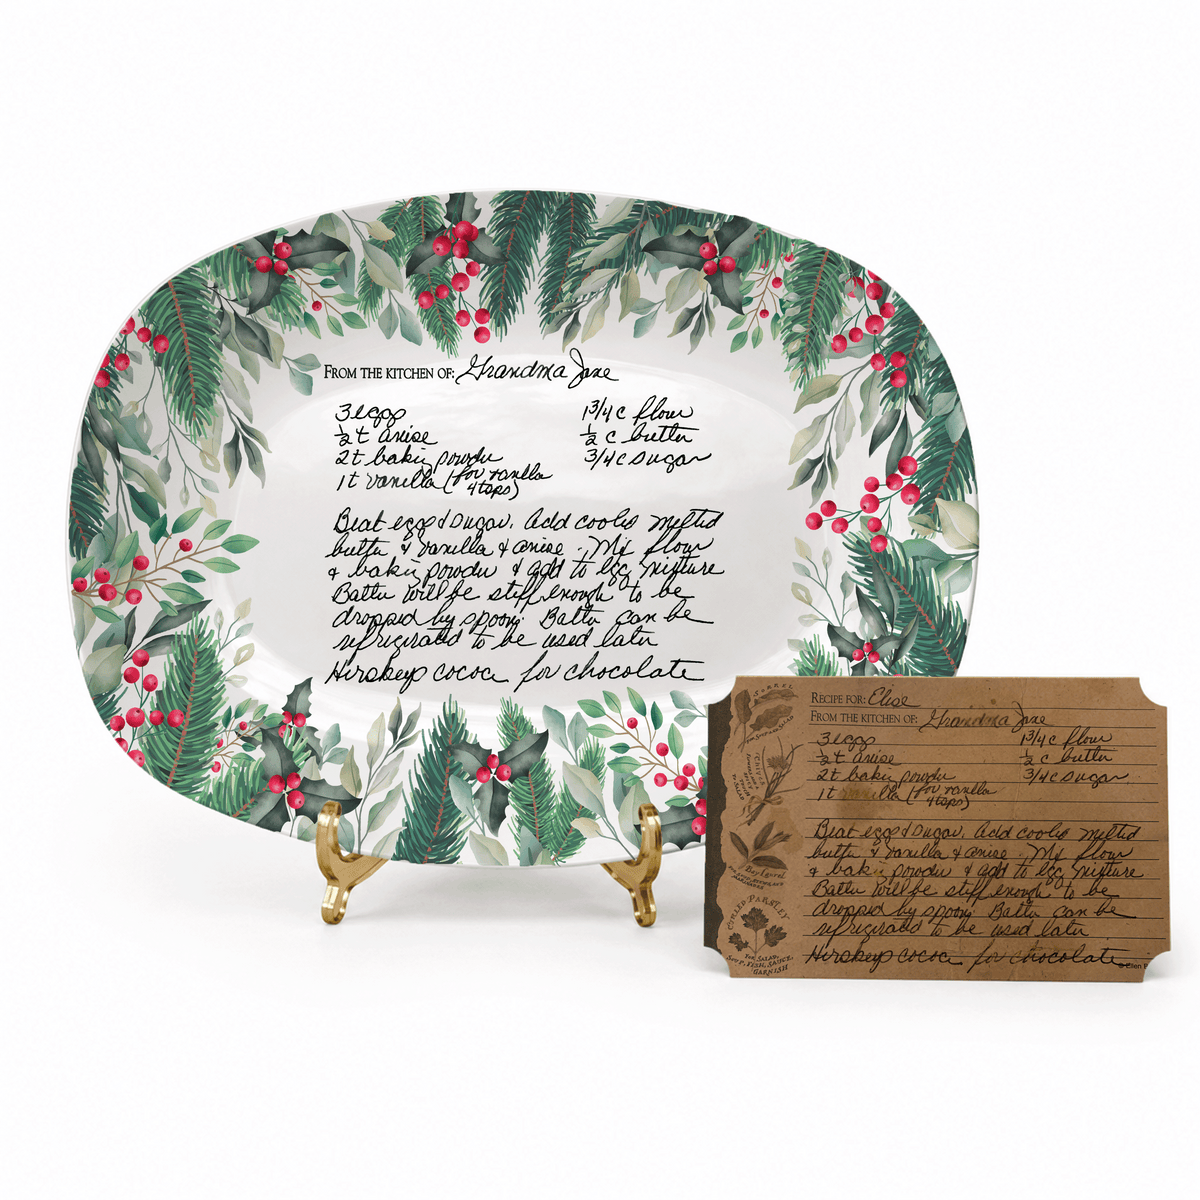 FROM THE KITCHEN OF: Grandma Jane
3 eggs 1 3/4 c flour
1/2 t anise 1/2 c butter
2t baking powder 3/4 c sugar
1t vanilla (for vanilla
4 tsps)
Beat eggs & sugar. Add cooled melted
butter & vanilla & anise. Mix flour
& baking powder & add to egg mixture
Batter will be stiff enough to be
dropped by spoon. Batter can be
refrigerated to be used later
Hersheys cocoa for chocolate
SORREL
FOR SOUP AND SALAD
CHIVES
Bay Laurel
CURLED PARSLEY
FOR SALAD,
SOUP, FISH, SAUCE,
GARNISH
RECIPE FOR: Elise
FROM THE KITCHEN OF: Grandma Jane
3 eggs 1 3/4 c flour
1/2 t anise 1/2 c butter
2t baking powder 3/4 c sugar
1t vanilla (for vanilla
4 tsps)
Beat eggs & sugar. Add cooled melted
butter & vanilla & anise. Mix flour
& baking powder & add to egg mixture
Batter will be stiff enough to be
dropped by spoon. Batter can be
refrigerated to be used later
Hersheys cocoa for chocolate
© Ellen